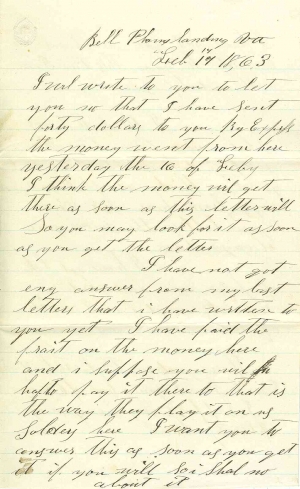 Bell Plains Landing Va
Feb 17th 1863
I wil wrote to you to let
you no that I have sent
forty dollars to you By Express
the money went from here
yesterday the 16 of Feby
I think the money wil get
there as soon as this letter will
So you may look for it as soon
as you get the letter
I have not got
eny answer from my last
letters that i have written to
you yet I have paid the
frait on the money here
and i suppose you wil
hafto pay it there to that is
the way they play it on us
Soldiers here I want you to
answer this as soon as you get
it if you will so i shal no
about it